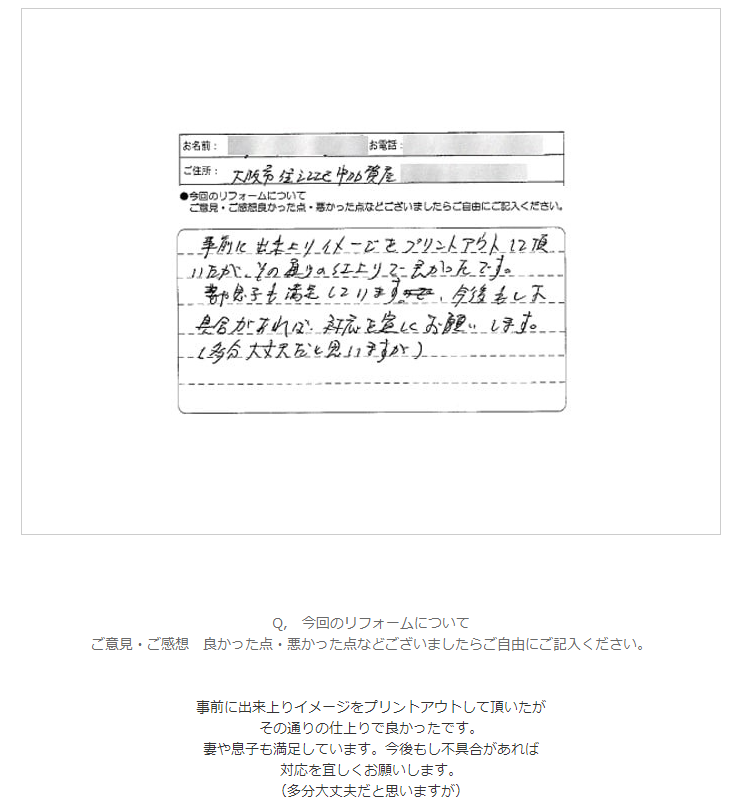 お名前：
お電話：
ご住所： 大阪市住
●今回のリフォームについて
ご意見・ご感想良かった点・悪かった点などございましたらご自由にご記入ください。
事前に出来上りイメージをプリントアウトして頂
いたが、その通りの仕上りで良かったです。
妻や息子も満足しています。今後もし不
具合があれば、対応を宜しくお願いします。
(多分大丈夫だと思いますが)
Q,　今回のリフォームについて
ご意見・ご感想　良かった点・悪かった点などございましたらご自由にご記入ください。
事前に出来上りイメージをプリントアウトして頂いたが
その通りの仕上りで良かったです。
妻や息子も満足しています。今後もし不具合があれば
対応を宜しくお願いします。
（多分大丈夫だと思いますが）